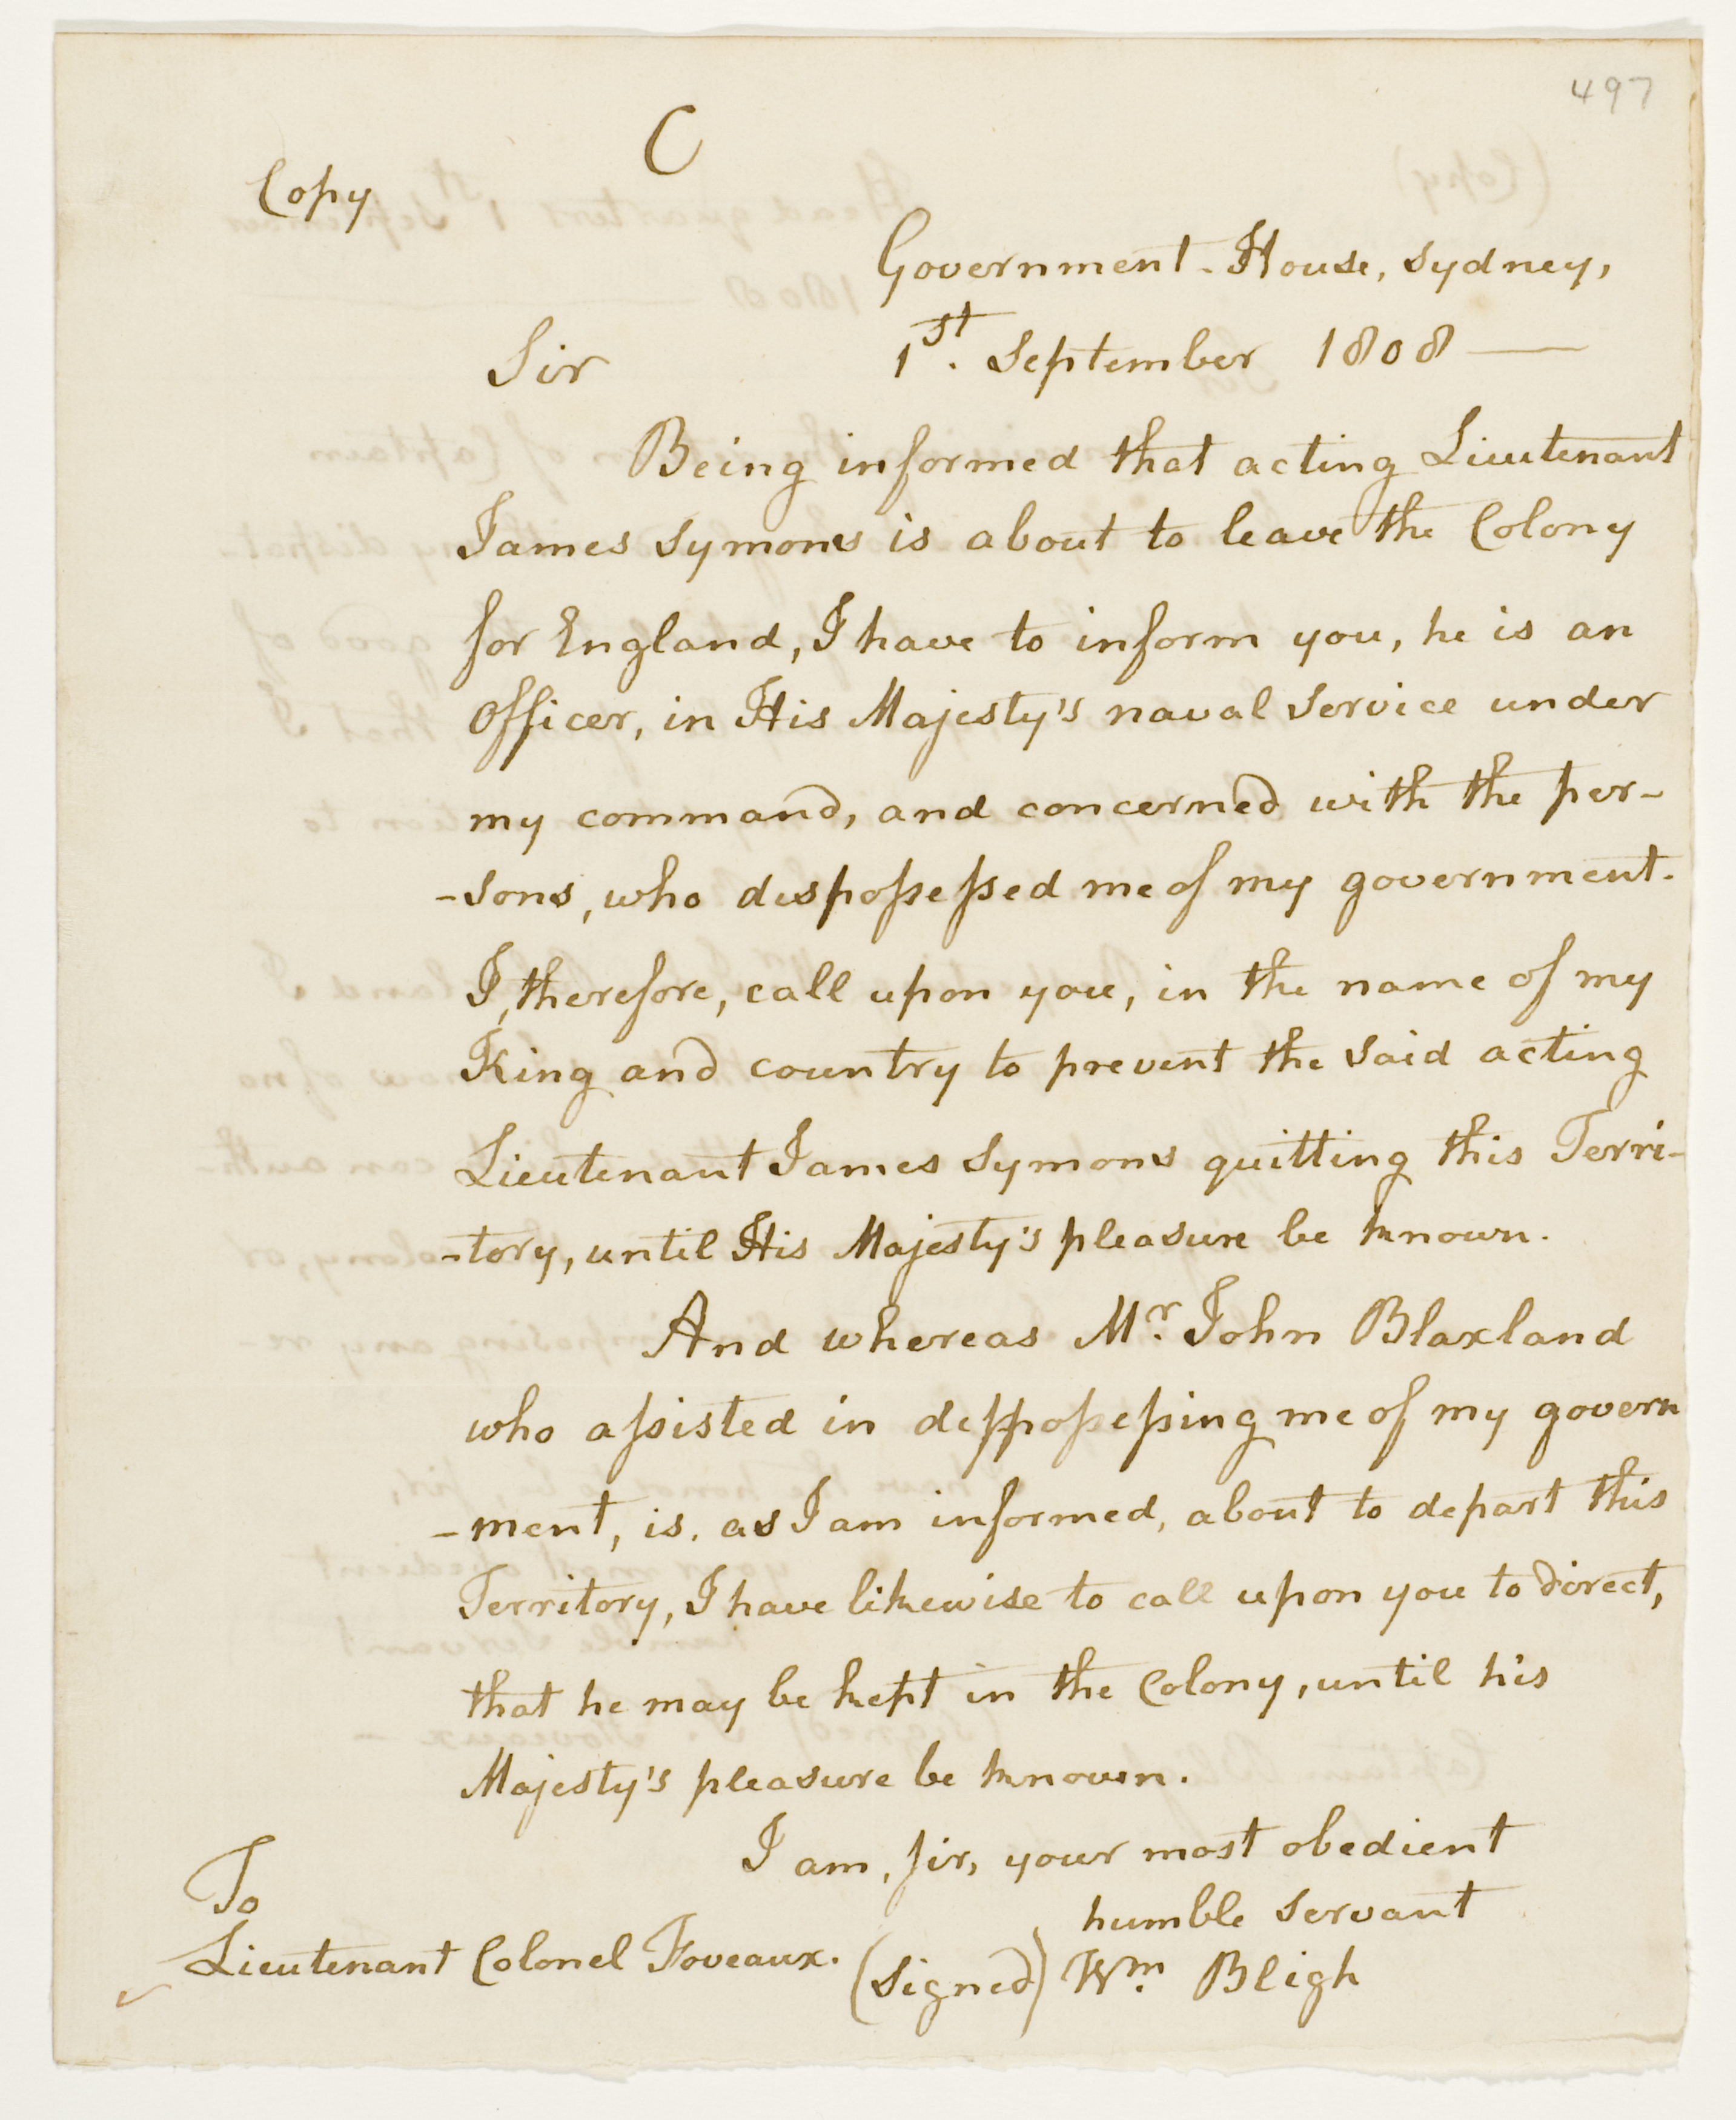 497
C
Copy
Government-House, Sydney,
Sir 1st. September 1808 —
Being informed that acting Lieutenant
James Symons is about to leave the Colony
for England, I have to inform you, he is an
Officer, in His Majesty's naval service under
my command, and concerned with the per-
-sons, who dispossessed me of my government.
I, therefore, call upon you, in the name of my
King and country to prevent the said acting
Lieutenant James Symons quitting this Terri-
-tory, until His Majesty's pleasure be known.
And whereas Mr. John Blaxland
who assisted in disposessing me of my govern
-ment, is, as I am informed, about to depart this
Territory, I have likewise to call upon you to direct,
that he may be kept in the Colony, until his
Majesty's pleasure be known.
I am, sir, your most obedient
humble servant
To
Lieutenant Colonel Foveaux. (signed) Wm. Bligh